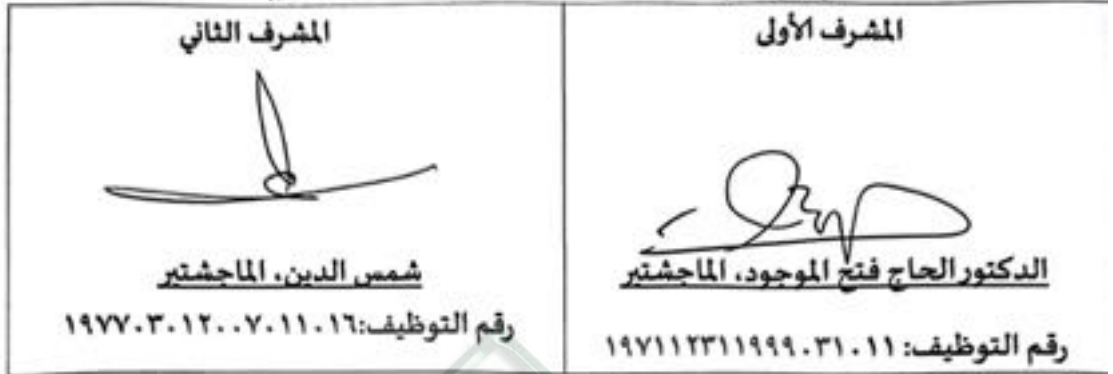 المشرف الأولى
الدكتور الحاج فتح الموجود، الماجشتير
رقم التوظيف: ١٩٧١١٢٣١١٩٩٩٠٣١٠١١
المشرف الثاني
شمس الدين، الماجشتير
رقم التوظيف:١٩٧٧٠٣٠١٢٠٠٧٠١١٠١٦